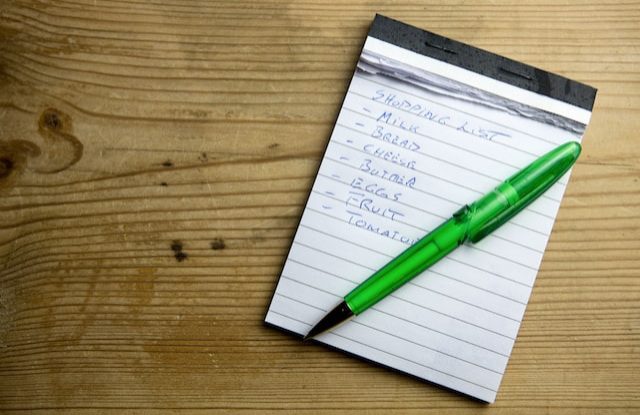 SHOPPING LIST
- MILK
- BREAD
- CHEESE
- BUTTER
- EGGS
- FRUIT